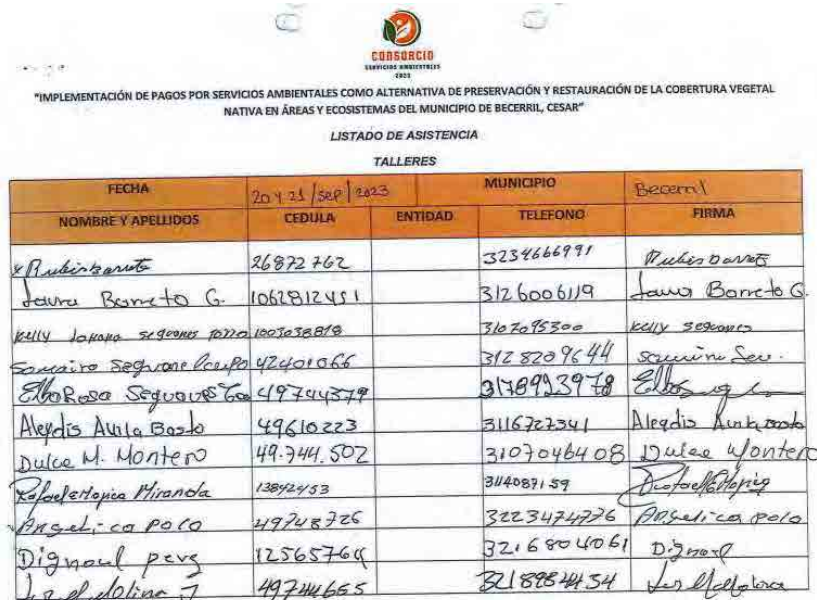 CONSORCIO
SERVICIOS AMBIENTALES
2023
"IMPLEMENTACIÓN DE PAGOS POR SERVICIOS AMBIENTALES COMO ALTERNATIVA DE PRESERVACIÓN Y RESTAURACIÓN DE LA COBERTURA VEGETAL
NATIVA EN ÁREAS Y ECOSISTEMAS DEL MUNICIPIO DE BECERRIL, CESAR"
LISTADO DE ASISTENCIA
TALLERES
FECHA 20 y 21/sep/2023 MUNICIPIO Becerril
NOMBRE Y APELLIDOS CEDULA ENTIDAD TELEFONO FIRMA
x Rubis barreto 26872762 3234666991 Rubis barreto
Laura Barreto G. 1062812451 3126006119 Laura Barreto G.
Kelly Johana seguanes 1003038818 3107095300 Kelly seguanes
42401066 3128209644
Elba Rosa 49744379 3178923978
Aleydis Avila Basto 49610223 3116727341 Aleydis Avila Basto
Dulce M. Montero 49.744.502 3107046408 Dulce Montero
Rafael Mojica Miranda 13842453 3114087159 Rafael Mojica
Angelica polo 49748726 3223474776 Angelica polo
Dignael perez 12565764 3216804061 Dignael
Molina J 49744655 3218984434